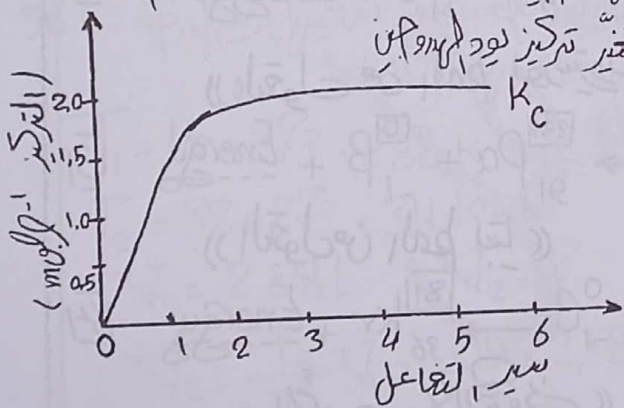 تغيّر تركيز يود الهيدروجين
التركيز (mol.l⁻¹)
2,0
1,5
1.0
0,5
K_C
0 1 2 3 4 5 6
سير التفاعل